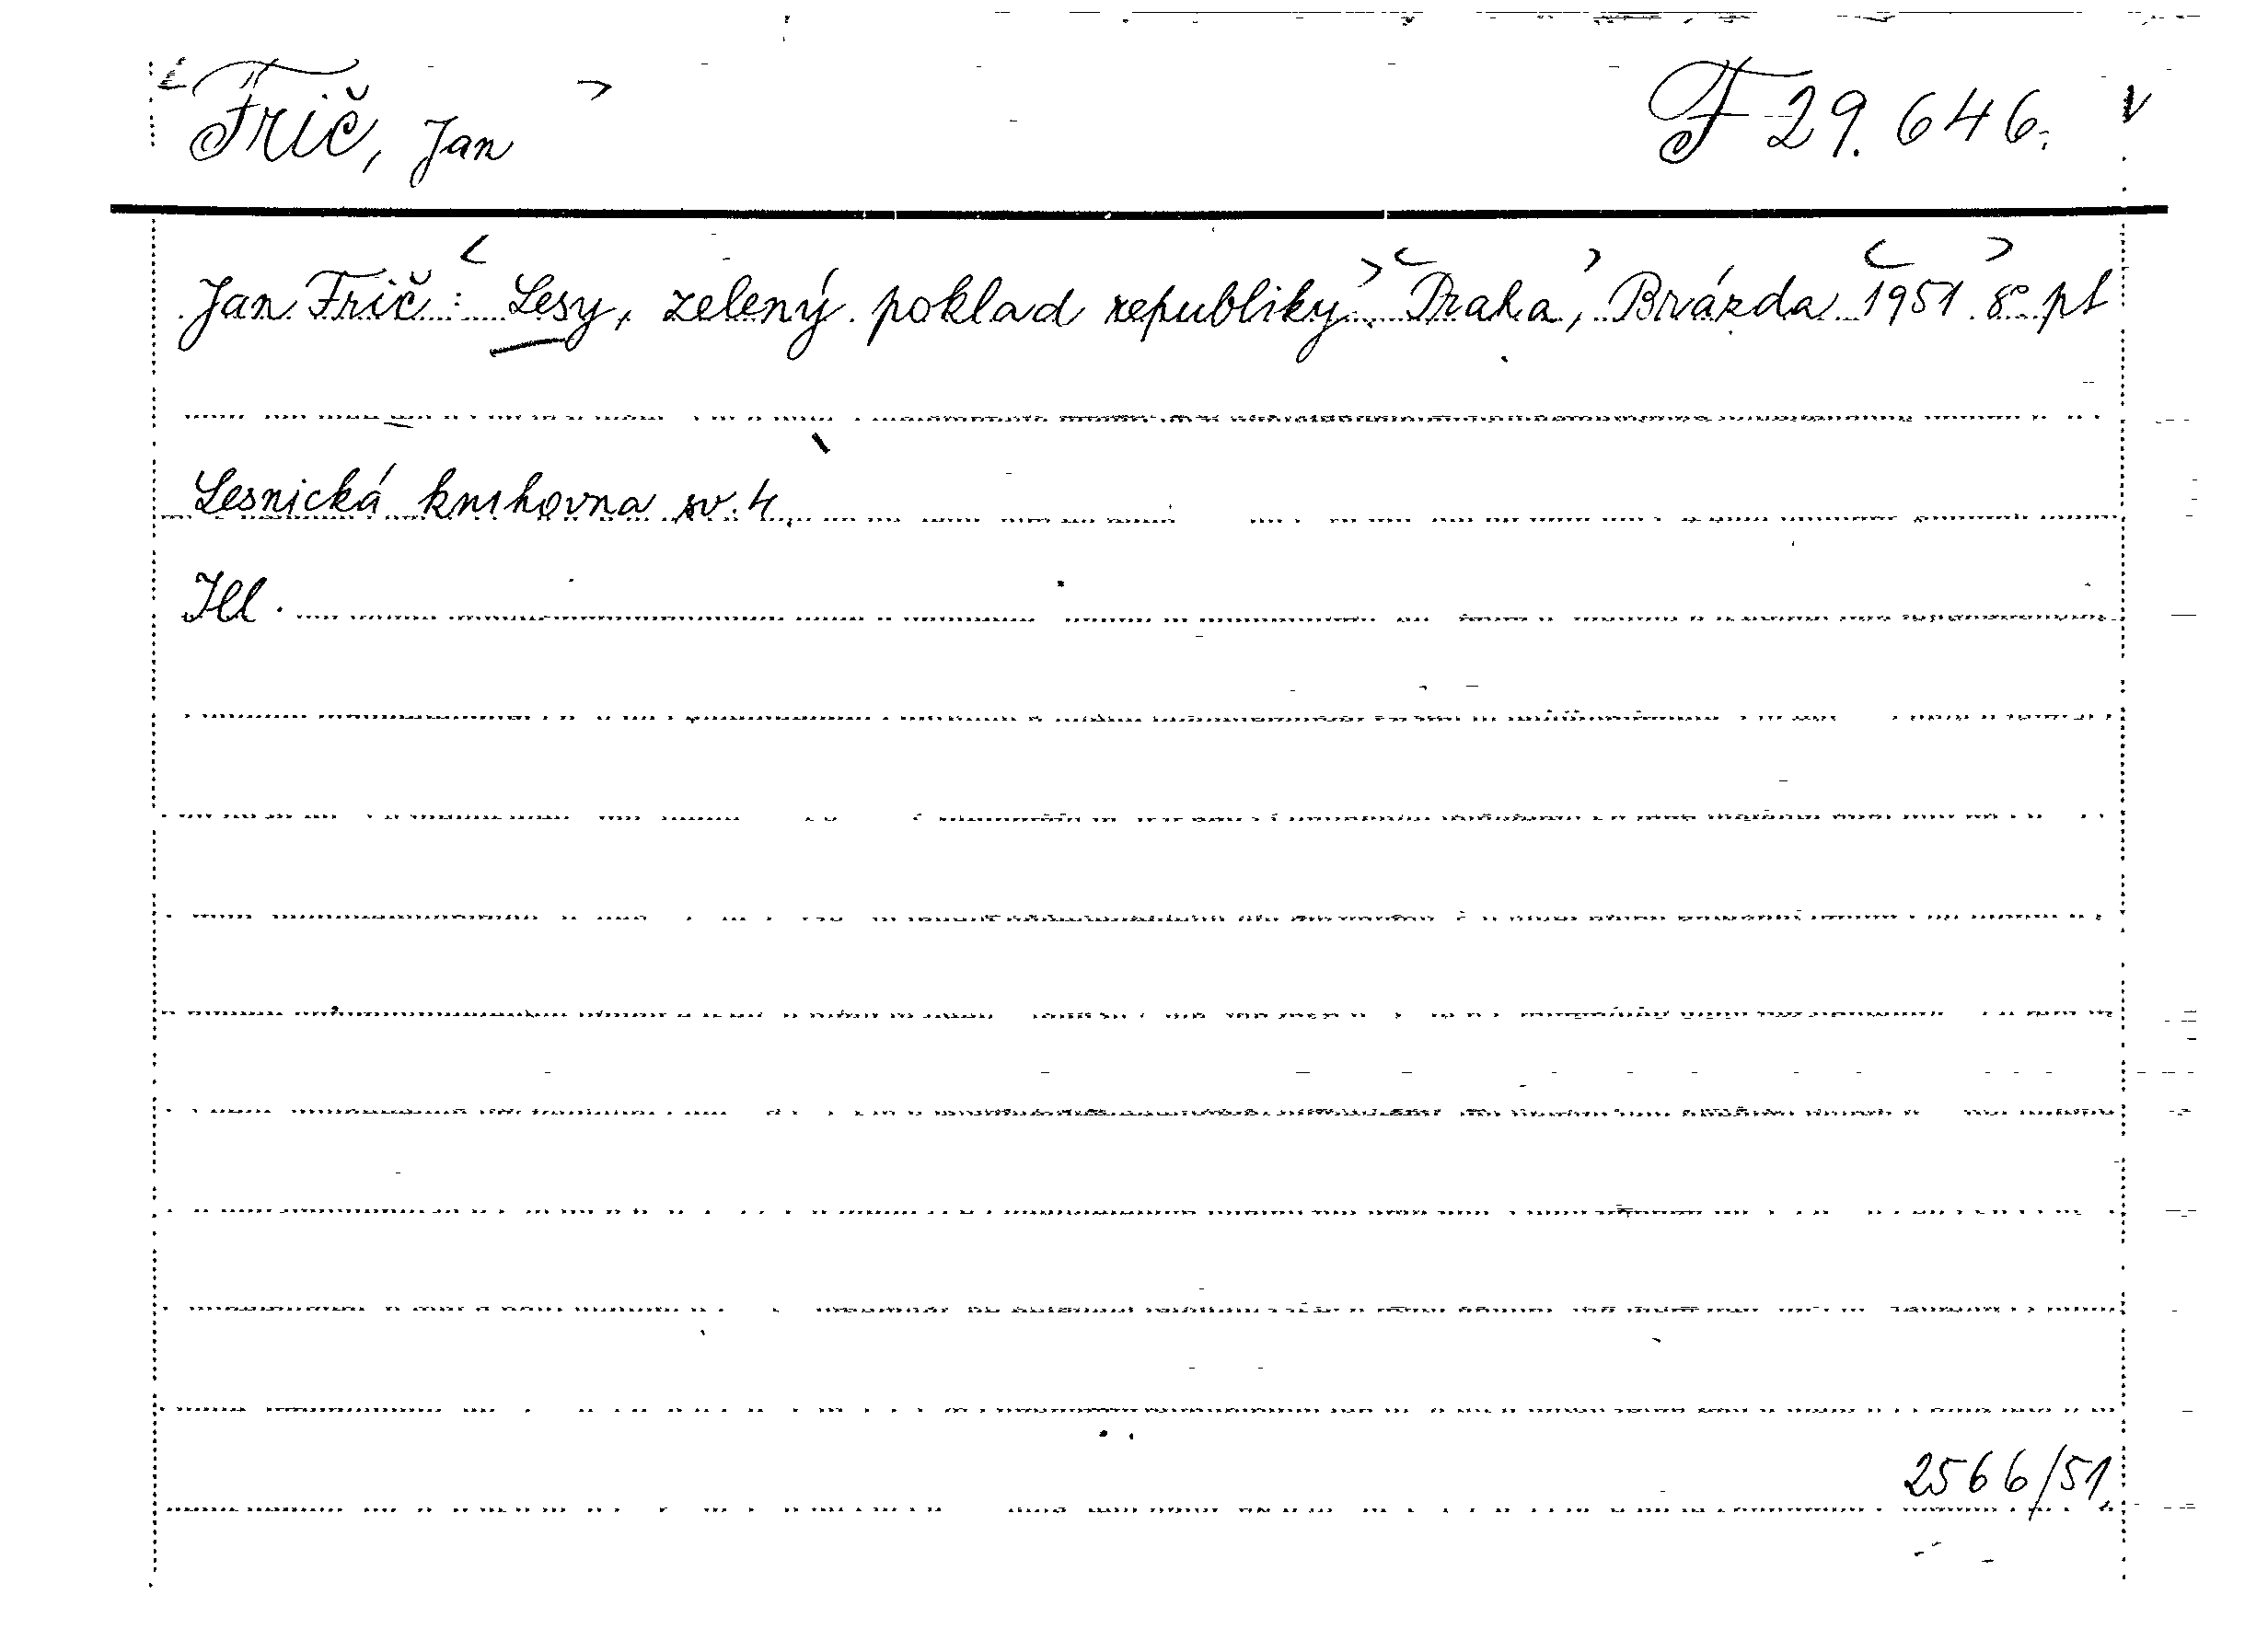 Frič, Jan F 29.646.
Jan Frič: Lesy, zelený poklad republiky. Praha, Brázda 1951 8° pt
Lesnická knihovna sv. 4.
Ill.
2566/51.